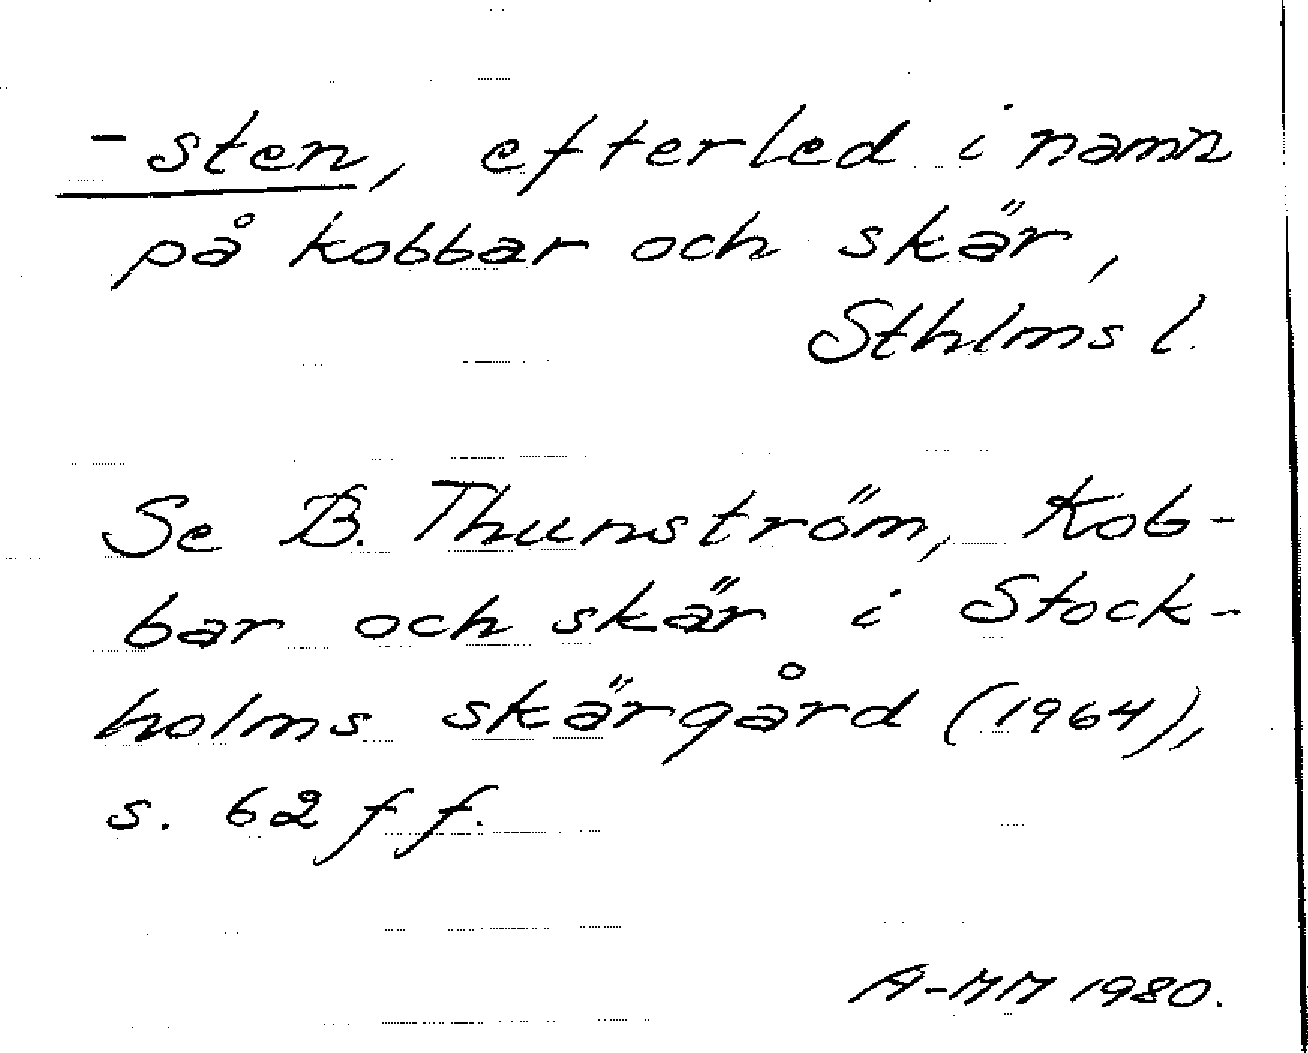 -sten, efterled i namn
på kobbar och skär,
Sthlms l.
Se B. Thunström, Kob-
bar och skär i Stock-
holms skärgård (1964),
s. 62 ff.
A-MM 1980.